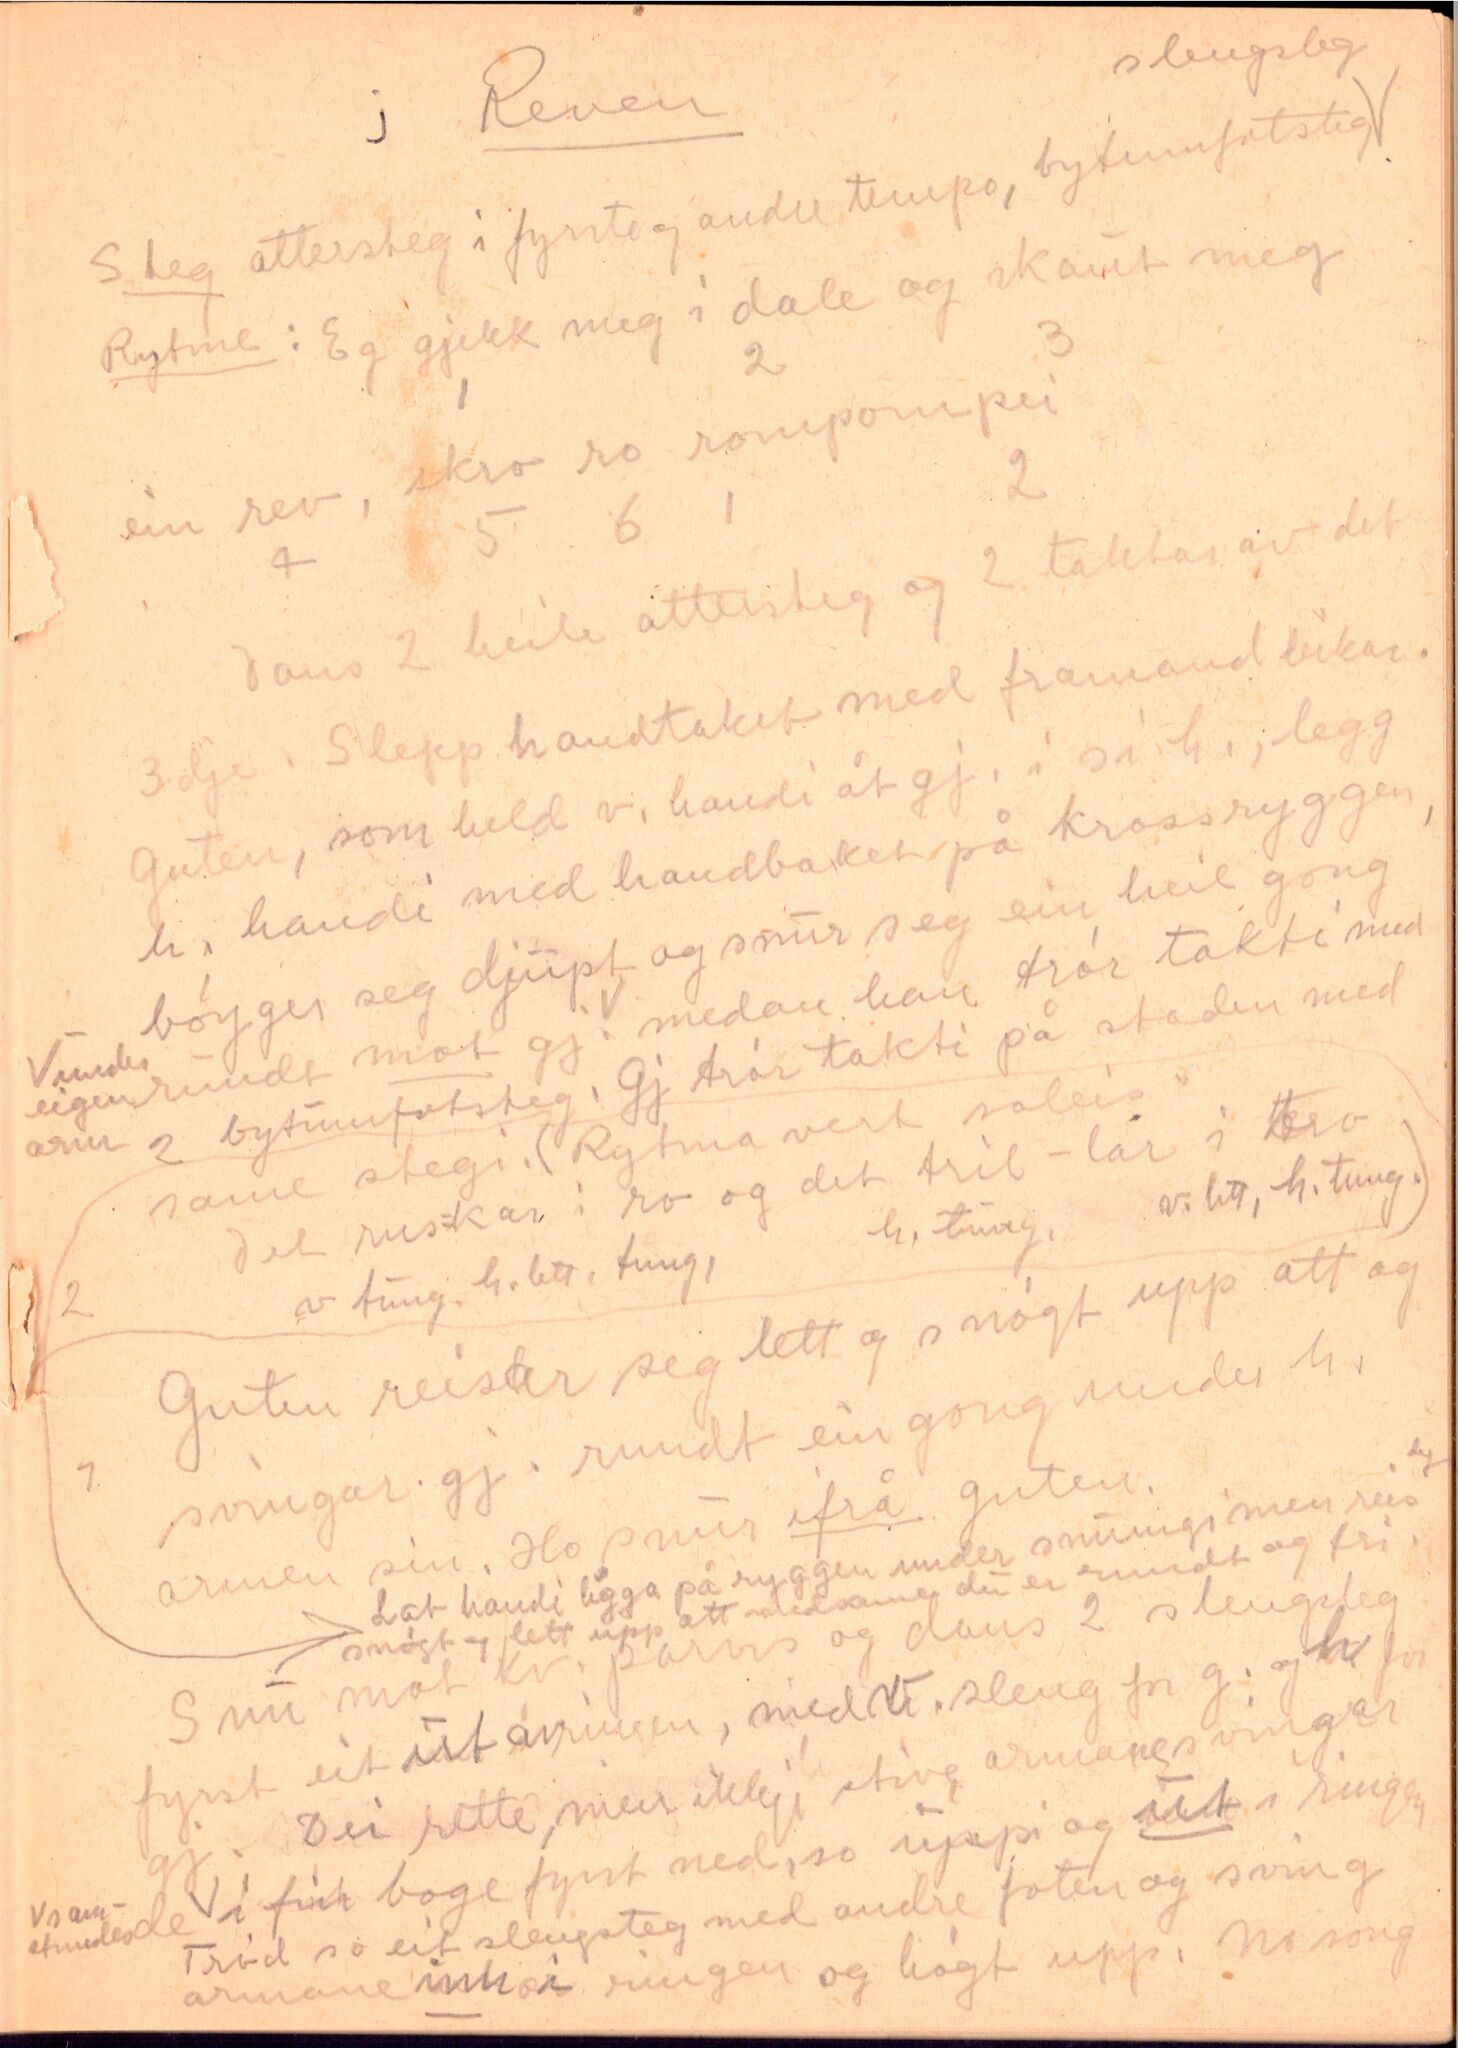 j Reven
slengsteg
Steg attersteg i fyrste og andre tempo, bytumfotsteg √
Rytme: Eg gjekk meg i dale og skaut meg
1 2 3
ein rev, skro ro rompompei
4 5 6 1 2
Dans 2 heile attersteg og 2 taktar av det
3dje. Slepp handtaket med framand leikar.
Guten, som held v. handi åt gj. i si h., legg
h. handi med handbaket på krossryggen,
bøyger seg djupt og snur seg ein heil gong
rundt mot gj. √ medan han trør takti med
√ under eigen arm
2 bytumfotsteg. Gj trør takti på staden med
same stegi. (Rytma vert soleis"
Det ruskar i ro og det tril-lar i tro
v tung. h. lett. tung, h. tung. v. lett, h. tung.)
2
Guten reiser seg lett og snøgt upp att og
1
svingar gj. rundt ein gong under h.
armen sin. Ho snur ifrå guten.
Lat handi ligga på ryggen under snuingi men reis deg
snøgt og lett upp att medsame du er rundt og fri.
Snu mot kv. parvis og dans 2 slengsteg
fyrst eit ut av ringen, med v. sleng for g. og h for
gj. Dei rette, men ikkje stive armane svingar
de √ i fin boge fyrst ned, so uppi og ut i ringen
√ samstundes
Trød so eit slengsteg med andre foten og sving
armane inn i ringen og høgt upp. No song